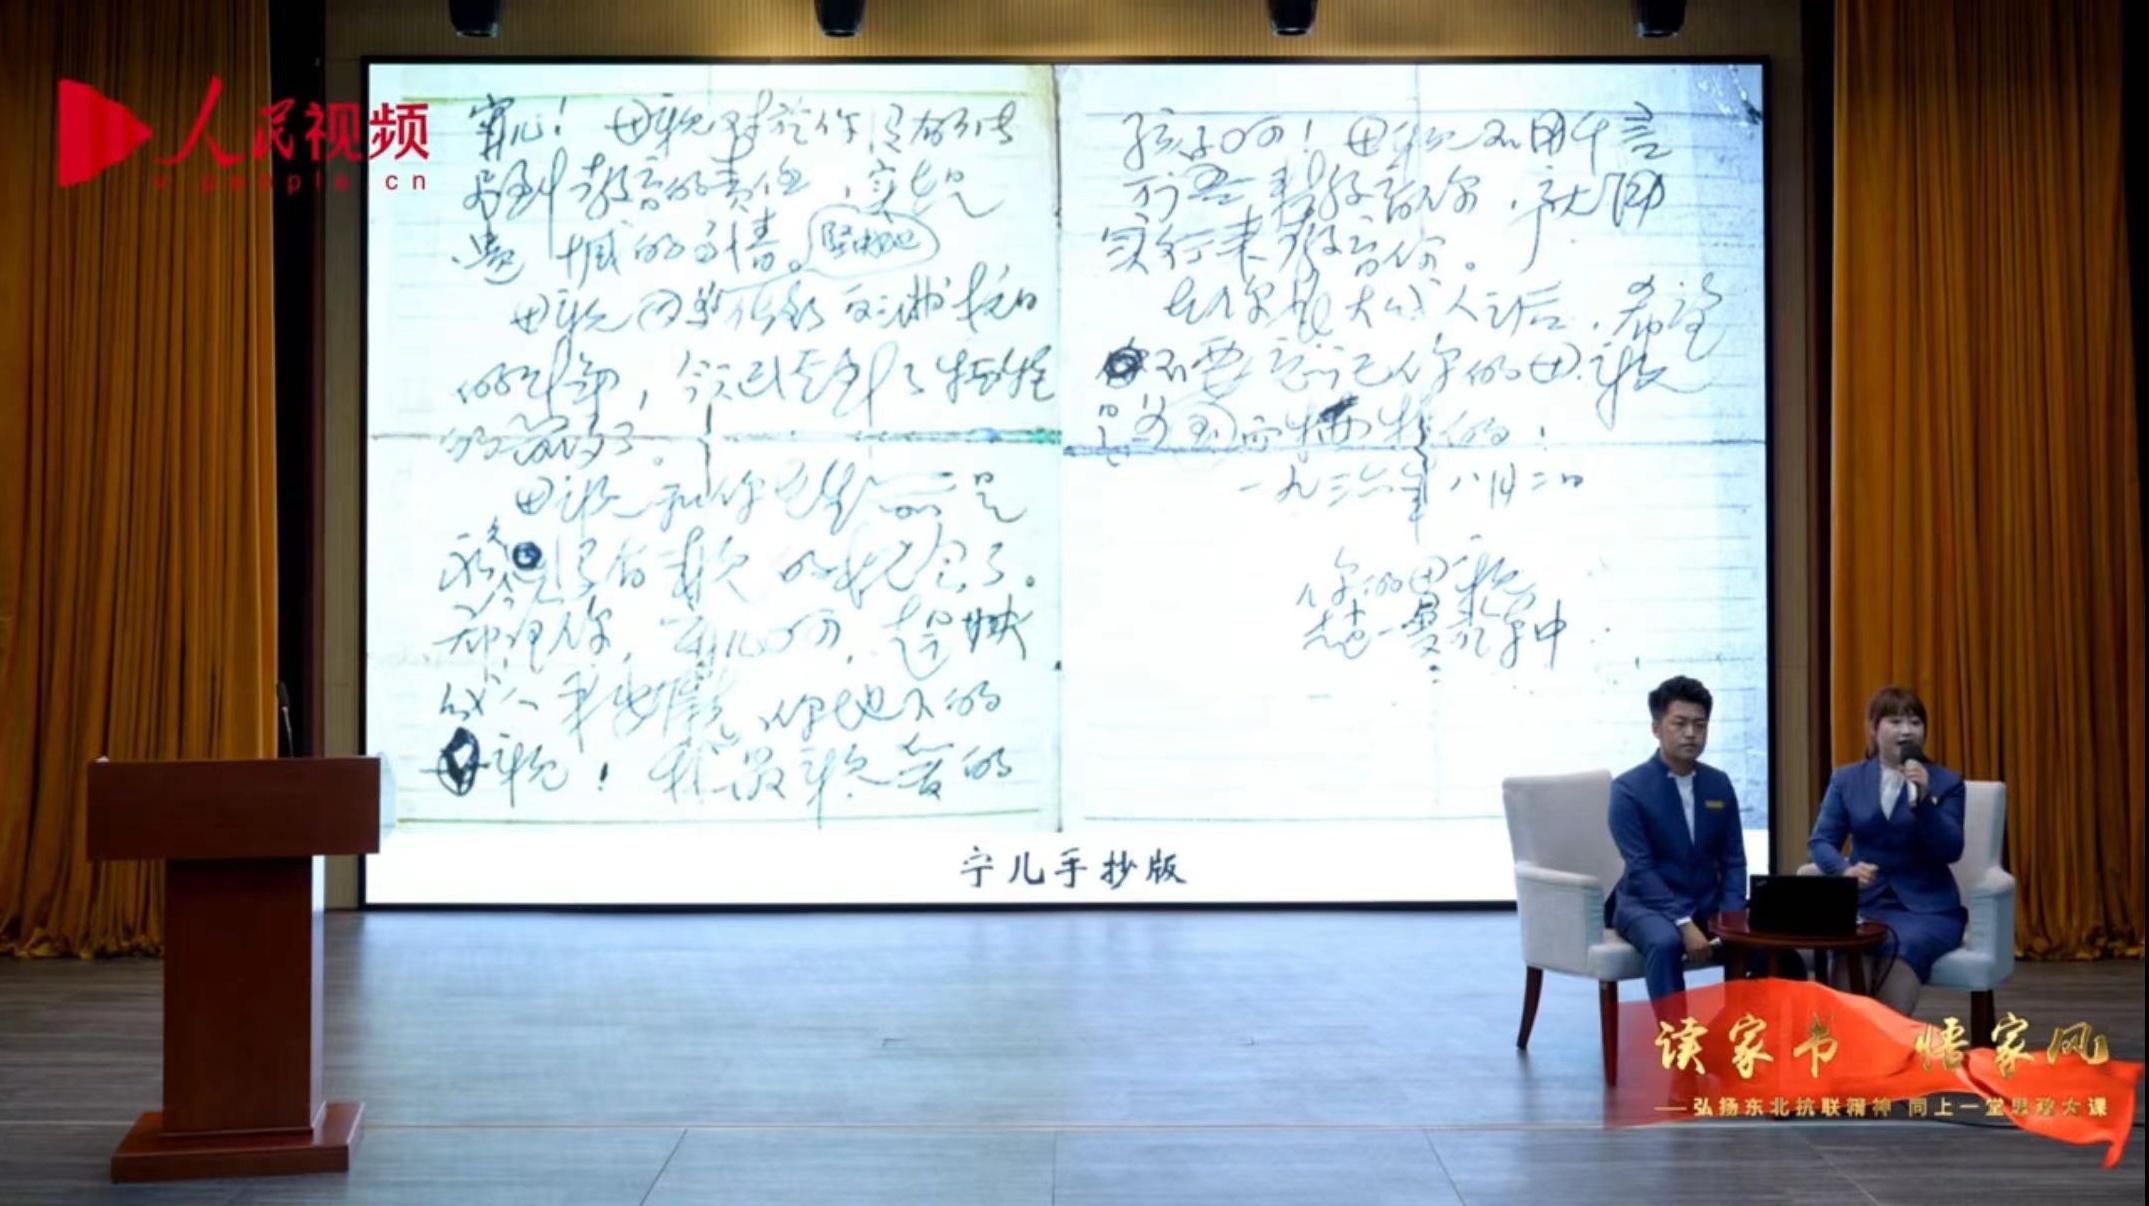 人民视频
people cn
宁儿！母親对於你没有能尽
到教育的责任，实在是
遗憾的事情。坚决地
母親因为做了反满抗日
的斗争，今天已经到了牺牲
的前夕了。
母親和你在生前是
永久没有再見的机会了。
希望你，宁儿啊，赶快
成人，来安慰你地下的
母親！我最親爱的
孩子啊！母親不用千言
万语来教育你，就用
实行来教育你。
在你长大成人之后，希望
不要忘记你的母親
是为国而牺牲的！
一九三六年八月二日
你的母親
赵一曼於车中
宁儿手抄版
读家书 悟家风
——弘扬东北抗联精神 同上一堂思政大课